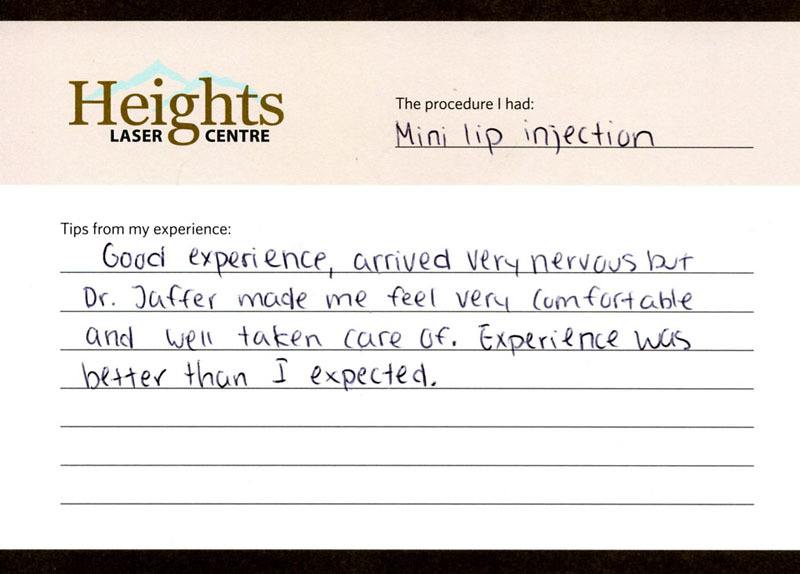 Heights
LASER CENTRE
The procedure I had:
Mini lip injection
Tips from my experience:
Good experience, arrived very nervous but
Dr. Jaffer made me feel very comfortable
and well taken care of. Experience was
better than I expected.